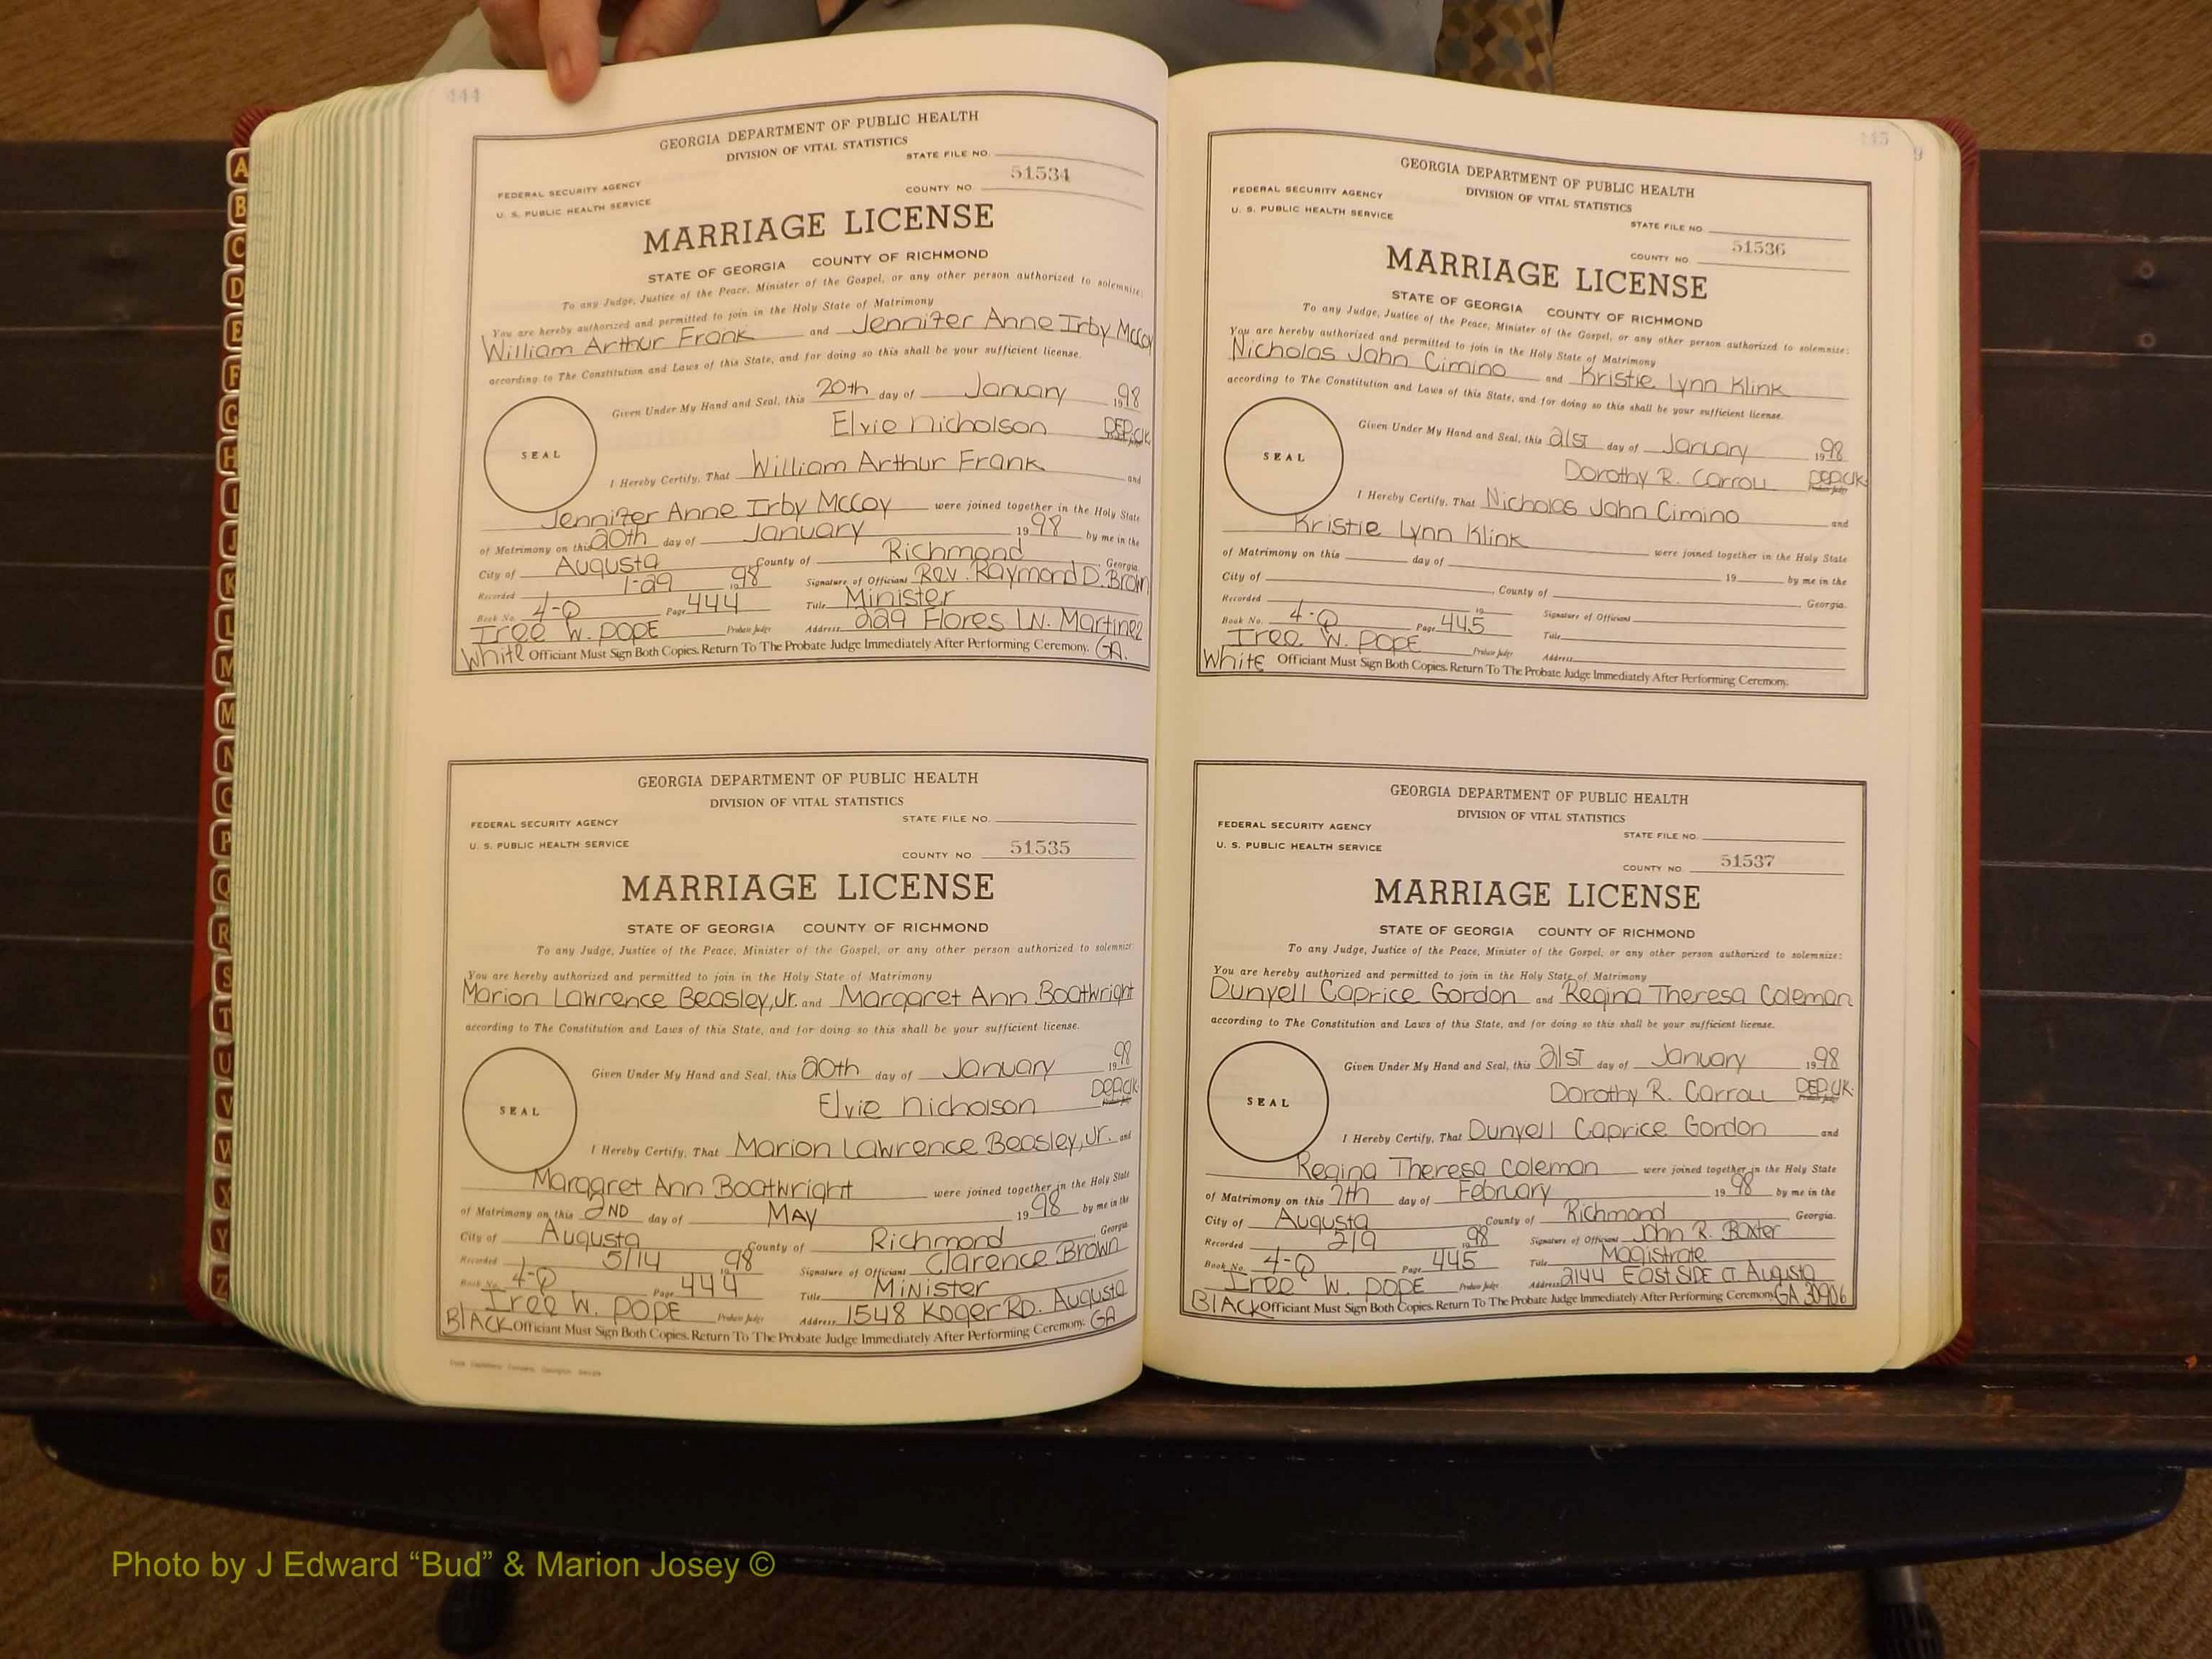 444
GEORGIA DEPARTMENT OF PUBLIC HEALTH
DIVISION OF VITAL STATISTICS
STATE FILE NO.
FEDERAL SECURITY AGENCY
U. S. PUBLIC HEALTH SERVICE
COUNTY NO 51534
MARRIAGE LICENSE
STATE OF GEORGIA COUNTY OF RICHMOND
To any Judge, Justice of the Peace, Minister of the Gospel, or any other person authorized to solemnize:
You are hereby authorized and permitted to join in the Holy State of Matrimony
William Arthur Frank and Jennifer Anne Irby McCoy
according to The Constitution and Laws of this State, and for doing so this shall be your sufficient license.
Given Under My Hand and Seal, this 20th day of January 1998
Elvie Nicholson DEP.CLK
SEAL
I Hereby Certify, That William Arthur Frank and
Jennifer Anne Irby McCoy were joined together in the Holy State
of Matrimony on this 20th day of January 1998 by me in the
City of Augusta County of Richmond Georgia.
Recorded 1-29 1998 Signature of Officiant Rev. Raymond D. Brown
Book No. 4-Q Page 444 Title Minister
Iree W. POPE Probate Judge Address 229 Flores LN. Martinez
White Officiant Must Sign Both Copies. Return To The Probate Judge Immediately After Performing Ceremony. GA.
GEORGIA DEPARTMENT OF PUBLIC HEALTH
DIVISION OF VITAL STATISTICS
STATE FILE NO.
FEDERAL SECURITY AGENCY
U. S. PUBLIC HEALTH SERVICE
COUNTY NO 51535
MARRIAGE LICENSE
STATE OF GEORGIA COUNTY OF RICHMOND
To any Judge, Justice of the Peace, Minister of the Gospel, or any other person authorized to solemnize:
You are hereby authorized and permitted to join in the Holy State of Matrimony
Marion Lawrence Beasley, Jr. and Margaret Ann Boatwright
according to The Constitution and Laws of this State, and for doing so this shall be your sufficient license.
Given Under My Hand and Seal, this 20th day of January 1998
Elvie Nicholson DEP.CLK.
SEAL
I Hereby Certify, That Marion Lawrence Beasley, Jr. and
Margaret Ann Boatwright were joined together in the Holy State
of Matrimony on this 2ND day of MAY 1998 by me in the
City of Augusta County of Richmond, Georgia.
Recorded 5/14 1998 Signature of Officiant Clarence Brown
Book No. 4-Q Page 444 Title Minister
Iree W. POPE Probate Judge Address 1548 Koger RD. Augusta
BLACK Officiant Must Sign Both Copies. Return To The Probate Judge Immediately After Performing Ceremony. GA
445
9
GEORGIA DEPARTMENT OF PUBLIC HEALTH
DIVISION OF VITAL STATISTICS
FEDERAL SECURITY AGENCY
U. S. PUBLIC HEALTH SERVICE
STATE FILE NO.
COUNTY NO. 51536
MARRIAGE LICENSE
STATE OF GEORGIA COUNTY OF RICHMOND
To any Judge, Justice of the Peace, Minister of the Gospel, or any other person authorized to solemnize:
You are hereby authorized and permitted to join in the Holy State of Matrimony
Nicholas John Cimino and Kristie Lynn Klink
according to The Constitution and Laws of this State, and for doing so this shall be your sufficient license.
Given Under My Hand and Seal, this 21ST day of January 1998
Dorothy R. Carroll DEP.CLK
Probate Judge
SEAL
I Hereby Certify, That Nicholas John Cimino and
Kristie Lynn Klink were joined together in the Holy State
of Matrimony on this day of 19 by me in the
City of , County of , Georgia.
Recorded 19 Signature of Officiant
Book No. 4-Q Page 445 Title
Iree W. POPE Probate Judge Address
White Officiant Must Sign Both Copies. Return To The Probate Judge Immediately After Performing Ceremony.
GEORGIA DEPARTMENT OF PUBLIC HEALTH
DIVISION OF VITAL STATISTICS
FEDERAL SECURITY AGENCY
STATE FILE NO.
U. S. PUBLIC HEALTH SERVICE
COUNTY NO. 51537
MARRIAGE LICENSE
STATE OF GEORGIA COUNTY OF RICHMOND
To any Judge, Justice of the Peace, Minister of the Gospel, or any other person authorized to solemnize:
You are hereby authorized and permitted to join in the Holy State of Matrimony
Dunyell Caprice Gordon and Regina Theresa Coleman
according to The Constitution and Laws of this State, and for doing so this shall be your sufficient license.
Given Under My Hand and Seal, this 21ST day of January 1998
Dorothy R. Carroll DEP.CLK.
SEAL
I Hereby Certify, That Dunyell Caprice Gordon and
Regina Theresa Coleman were joined together in the Holy State
of Matrimony on this 7th day of February 1998 by me in the
City of Augusta County of Richmond Georgia.
Recorded 2/9 1998 Signature of Officiant John R. Baxter
Book No. 4-Q Page 445 Title Magistrate
Iree W. POPE Probate Judge Address 2144 EAST SIDE CT Augusta
BLACK Officiant Must Sign Both Copies. Return To The Probate Judge Immediately After Performing Ceremony. GA 30906
A
B
C
D
E
F
G
H
I
J
K
L
M
M
N
O
P
Q
R
S
T
U
V
W
X
Y
Z
Photo by J Edward “Bud” & Marion Josey ©